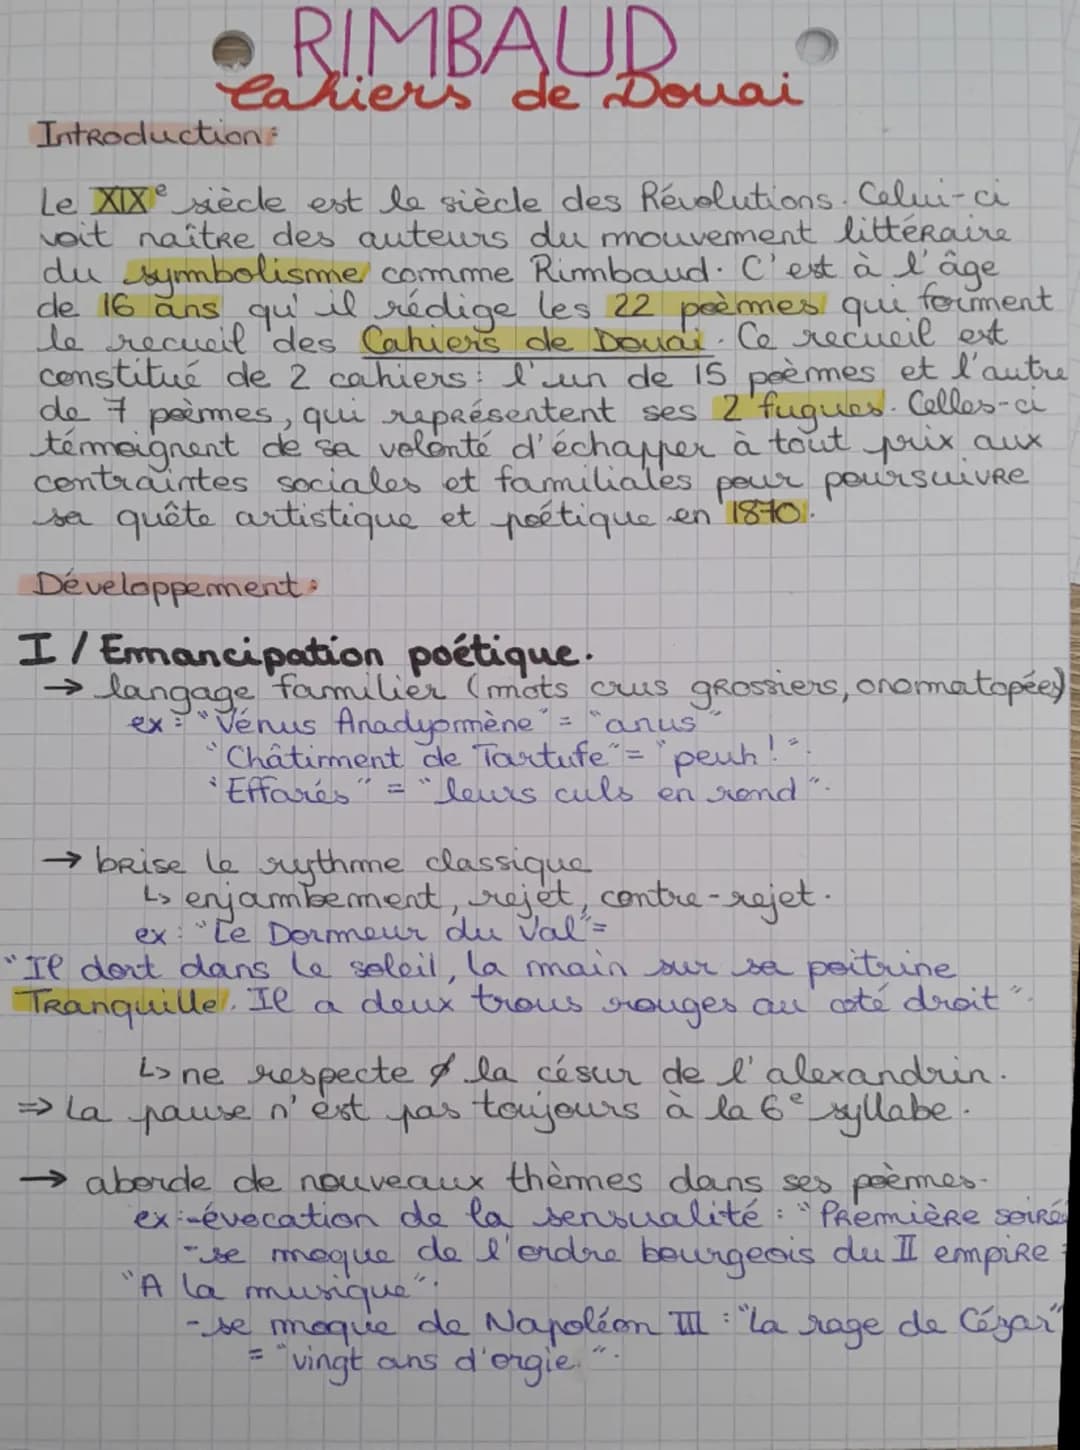 RIMBAUD
Cahiers de Douai
Introduction:
Le XIXe siècle est le siècle des Révolutions. Celui-ci
voit naître des auteurs du mouvement littéraire
du symbolisme comme Rimbaud. C'est à l'âge
de 16 ans qu'il rédige les 22 poèmes qui forment
le recueil des Cahiers de Douai. Ce recueil est
constitué de 2 cahiers: l'un de 15 poèmes et l'autre
de 7 poèmes, qui représentent ses 2 fugues. Celles-ci
témoignent de sa volonté d'échapper à tout prix aux
contraintes sociales et familiales pour poursuivre
sa quête artistique et poétique en 1870.
Développement:
I/Emancipation poétique.
→ langage familier (mots crus grossiers, onomatopées)
ex: "Vénus Anadyomène" = "anus"
"Châtiment de Tartufe" = "peuh!".
"Effarés" = "leurs culs en rond".
→ brise le rythme classique
↳ enjambement, rejet, contre-rejet.
ex: "Le Dormeur du Val"=
"Il dort dans le soleil, la main sur sa poitrine
Tranquille. Il a deux trous rouges au coté droit".
↳ ne respecte ∅ la césur de l'alexandrin.
⇒ La pause n'est pas toujours à la 6e syllabe.
→ aborde de nouveaux thèmes dans ses poèmes.
ex:-évocation de la sensualité : "Première soirée
-se moque de l'ordre bourgeois du II empire =
"A la musique".
-se moque de Napoléon III : "La rage de Cézar"
= "vingt ans d'orgie".